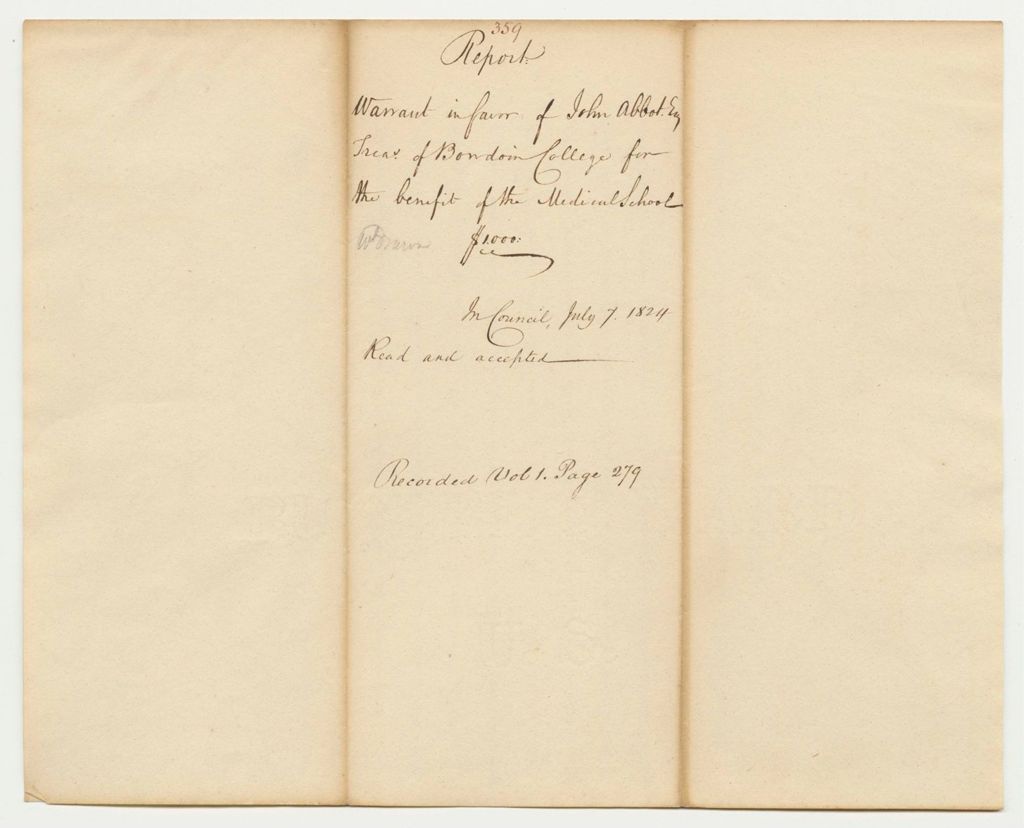 359
Report
Warrant in favor of John Abbot Esq
Treas. of Bowdoin College for
the benefit of the Medical School
Wt Drawn $1000:
In Council, July 7. 1824
Read and accepted
Recorded Vol 1. Page 279